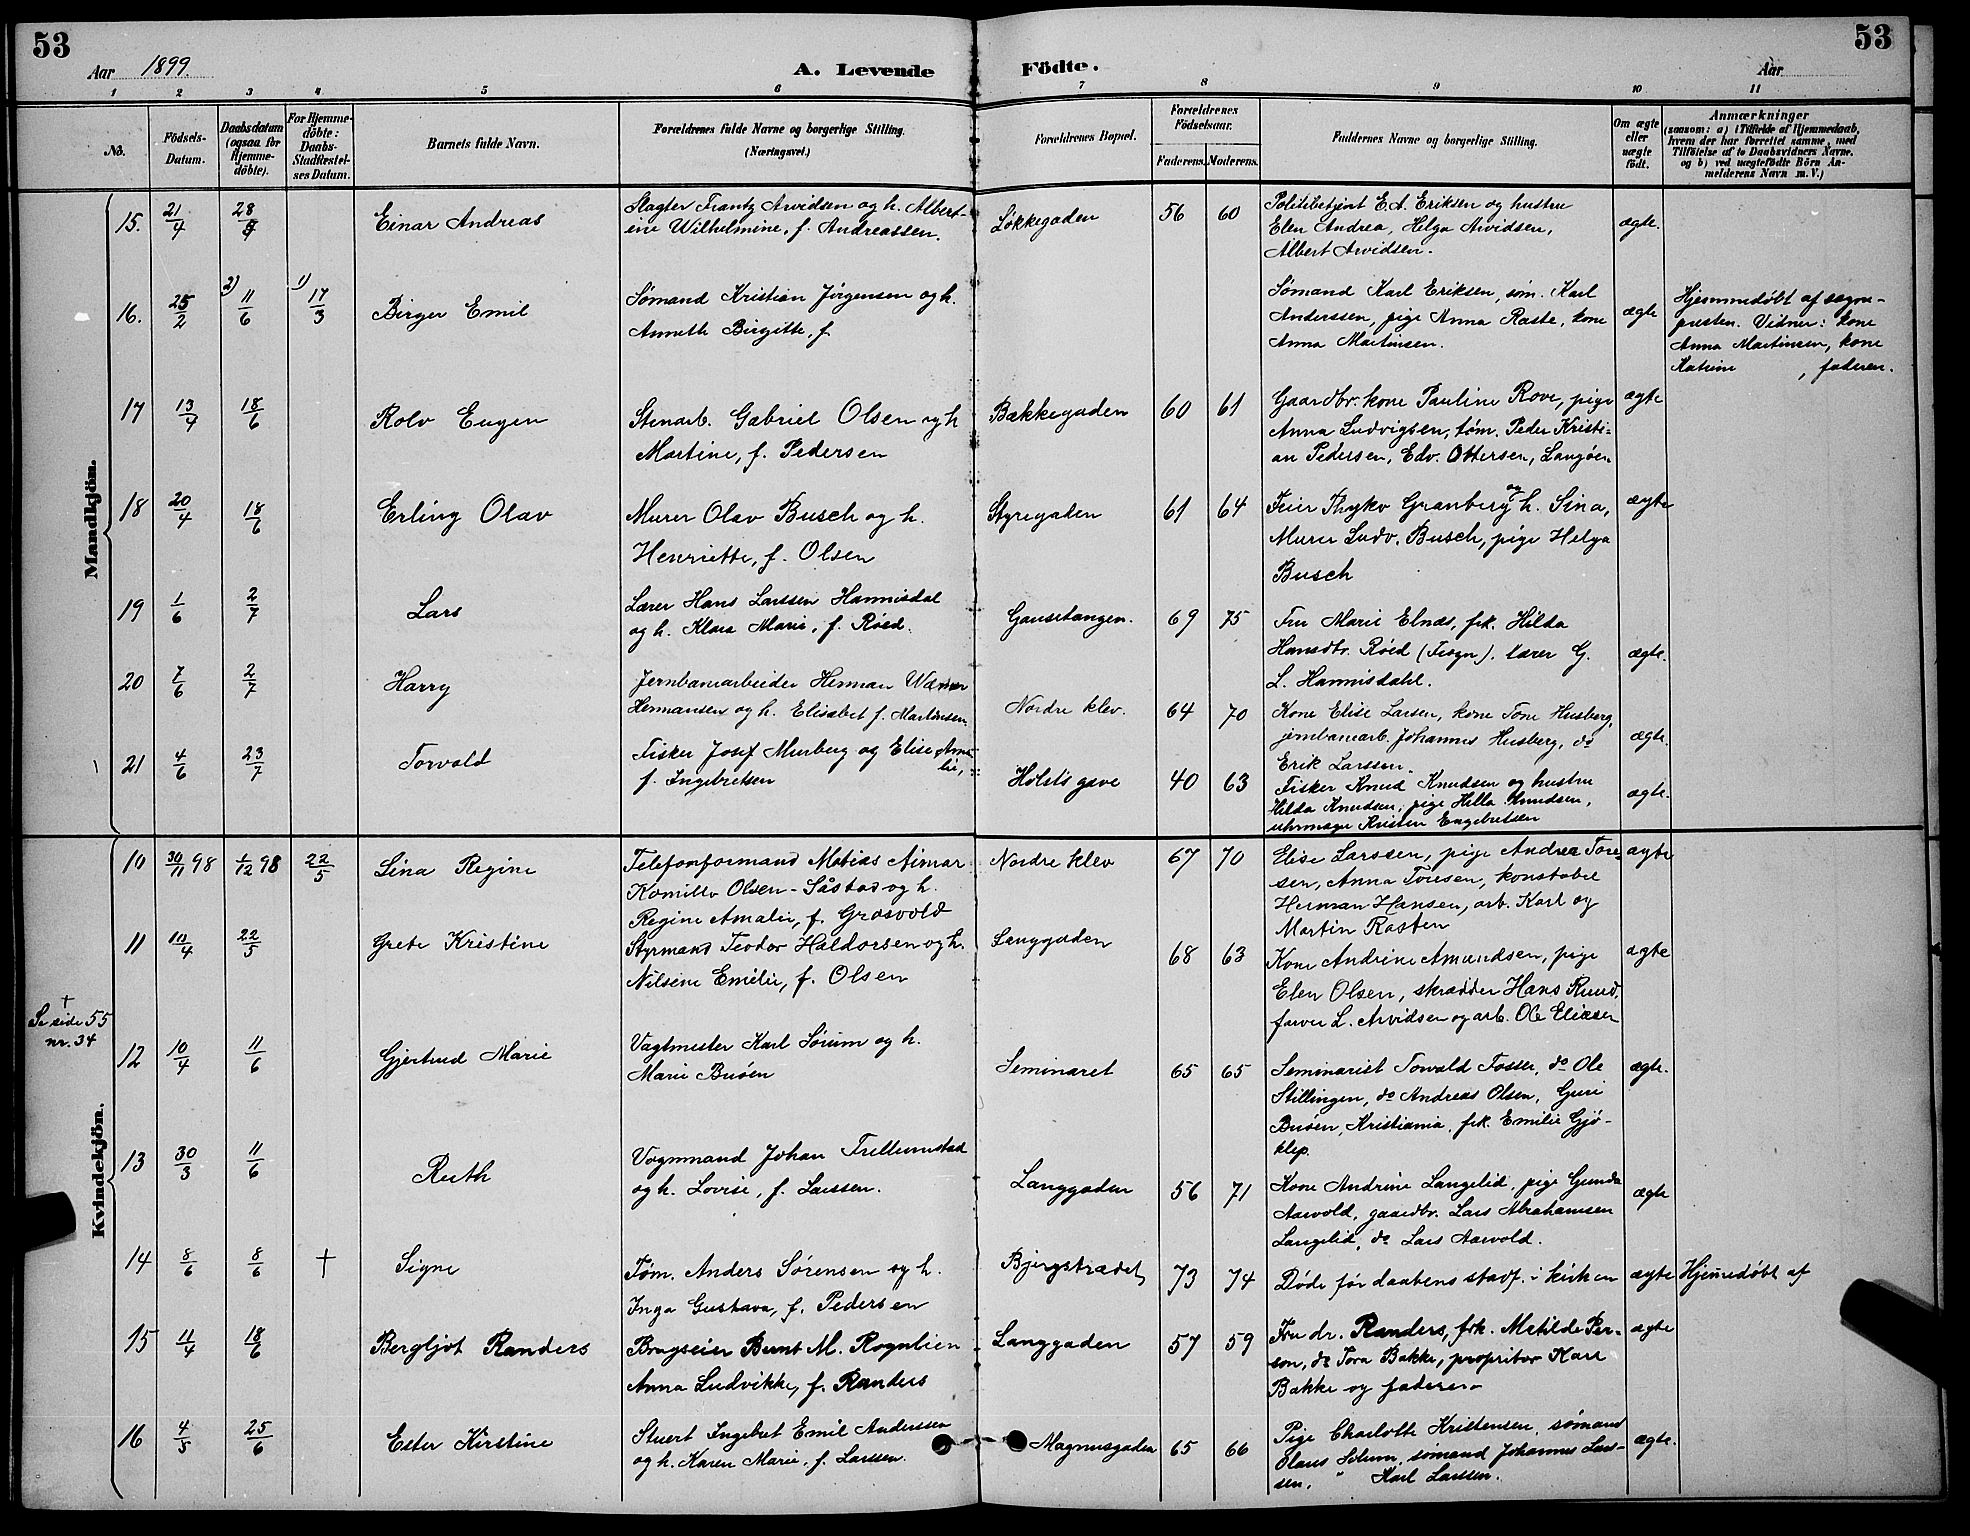 53
Aar 1899.
A. Levende Födte.
Aar
53
1 2 3 4 5 6 7 8 9 10 11
No.
Födsels-Datum.
Daabsdatum (ogsaa for Hjemmedöbte).
For Hjemmedöbte: Daabs-Stadfæstelses Datum.
Barnets fulde Navn.
Forældrenes fulde Navne og borgerlige Stilling.
(Næringsvei.)
Forældrenes Bopæl.
Forældrenes Födselsaar.
Faderens. Moderens.
Faddernes Navne og borgerlige Stilling.
Om ægte eller uægte födt.
Anmærkninger
(saasom: a) i Tilfælde af Hjemmedaab, hvem der har forrettet samme, med Tilföielse af to Daabsvidners Navne, og b) ved uægtefödte Börn Anmelderens Navn m.V.)
Mandkjön.
15. 21/4 28/5 Einar Andreas
Slagter Frantz Arvidsen og h. Albert-
ine Wilhelmine, f. Andreassen.
Løkkegaden 56 60
Politibetjent E.A. Eriksen og hustru
Elen Andrea, Helga Arvidsen,
Albert Arvidsen.
ægte.
16. 25/2 2) 11/6 1) 17/3 Birger Emil
Sømand Kristian Jørgensen og h.
Anneth Birgitte, f.
Sømand Karl Eriksen, søm. Karl
Anderssen, pige Anna Raste, kone
Anna Martinsen.
ægte
Hjemmedøbt af sogne-
presten. Vidner: kone
Anna Martinsen, kone
Katrine , faderen.
17 13/4 18/6 Rolv Eugen
Stenarb. Gabriel Olsen og h
Martine, f. Pedersen
Bækkegaden 60 61
Gaardbr. kone Pauline Rove, pige
Anna Ludvigsen, tøm. Peder Kristi-
an Pedersen, Edv. Ottersen, Langøen
ægte
18 20/4 18/6 Erling Olav
Murer Olav Busch og h.
Henriette, f. Olsen
Styregaden 61 64
Feier Thykv Granberg og h. Sina,
Murer Ludv. Busch, pige Helga
Busch
ægte
19 1/6 2/7 Lars
Lærer Hans Larssen Hannisdal
og h. Klara Marie, f. Røed.
Gausetangen. 69 75
Fru Marie Elnæs, frk. Hilda
Hansdtr. Røed (Tegn). lærer G.
L. Hannisdahl.
ægte.
20 7/6 2/7 Harry
Jernbanearbeider Herman Werner
Hermansen og h. Elisabet f. Martinsen
Nordre klev. 64 70
Kone Elise Larsen, kone Tone Husberg,
jernbanearb. Johannes Husberg, do
Erik Larssen.
ægte.
21 4/6 23/7 Torvald
Fisker Josef Murberg og Elise Ama-
lie, f. Ingebretsen
Holsts gave 40 63
Fisker Knud Knudsen og hustru
Hilda Knudsen, pige Hilla Knudsen,
uhrmager Kristen Engebretsen
ægte.
Kvindekjön.
10 30/11 98 4/12 98 22/5 Lina Regine
Telefonformand Matias Aimar
Kamillo Olsen-Såstad og h.
Regine Amalie, f. Grosvold
Nordre klev 67 70
Elise Larssen, pige Andrea Tore-
sen, Anna Toresen, konstabel
Herman Hansen, arb. Karl og
Martin Rasten
ægte
11 10/4 22/5 Grete Kristine
Styrmand Teodor Haldorsen og h.
Nilsine Emilie, f. Olsen
Langgaden 68 63
Kone Andrine Amundsen, pige
Elen Olsen, skrædder Hans Ruud,
farver L. Arvidsen og arb. Ole Eliassen
ægte
+
Se side 55
nr. 34
12 10/4 11/6 Gjertrud Marie
Vagtmester Karl Sørum og h.
Marie Buøen
Seminaret 65 65
Seminarist Torvald Tosser, do Ole
Stillingen, do Andreas Olsen, Guri
Buøen, Kristiania, frk. Emilie Gjø-
klep.
ægte.
13 30/3 11/6 Ruth
Vognmand Johan Trellumstad
og h. Lovise, f. Larssen.
Langgaden 56 71
Kone Andrine Langelid, pige Gunda
Aarvold, gaardbr. Lars Abrahamsen
Langelid, do Lars Aarvold.
ægte
14 8/6 8/6 + Signe
Tøm. Anders Sørensen og h.
Inga Gustava, f. Pedersen
Bjergstrædet 73 74
Døde før daabens stadf. i kirken
ægte
Hjemmedøbt af
15 11/4 18/6 Bergljot Randers
Brugseier Bernt M. Rognlien
Anna Ludvikke, f. Randers
Langgaden 57 59
Fru dr. Randers, frk. Matilde Per-
son, do Tora Bakke, propritær Karl
Bakke og faderen
ægte
16 4/5 25/6 Ester Kirstine
Stuert Ingebret Emil Anderssen
og h. Karen Marie, f. Larssen.
Magnusgaden 65 66
Pige Charlotte Kristensen, sømand
Olaus Solum, sømand Johannes Lars-
sen, " Karl Larssen.
ægte.